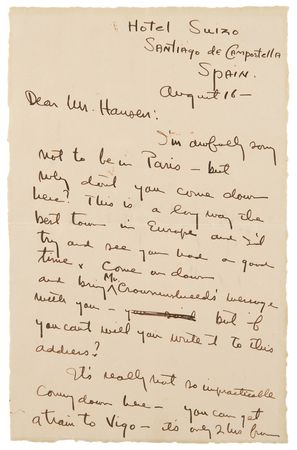 Hotel Suizo
Santiago de Campostella
Spain.
August 16 —
Dear Mr. Hansen:
I'm awfully sorry
not to be in Paris — but
why dont you come down
here? This is a long way the
best town in Europe and I'd
try and see you had a good
time. Come on down
and bring Mr. Crowninshield's message
with you — but if
you cant will you write it to this
address?
It's really not so impracticable
coming down here — you can get
a train to Vigo — its only 2 hrs from